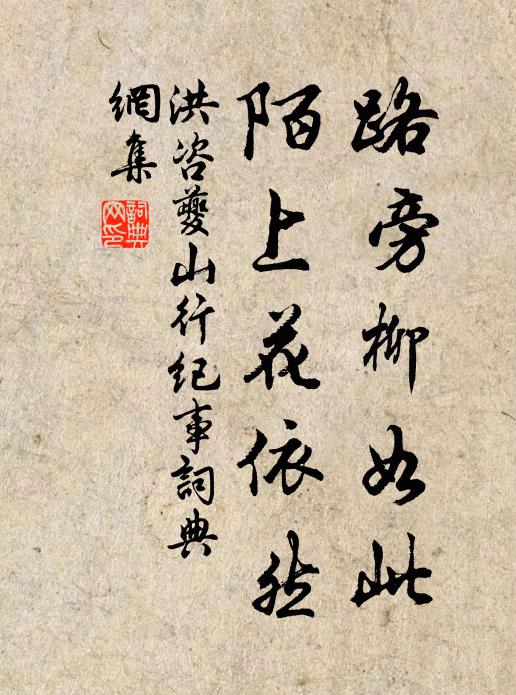 路旁柳如此
陌上花依然
洪咨夔山行纪事詞典
網集
詞典
网印